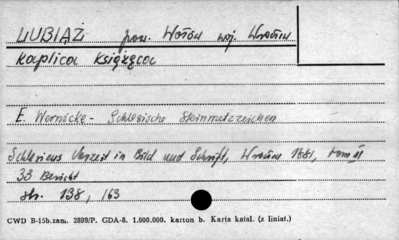 LUBIĄŻ pow. Wołów woj. Wrocław
Kaplica Książęca
E. Wernicke - Schlesische Steinmetzzeichen
Schlesiens Vorzeit in Bild und Schrift, Wrocław 1881, tom III
33 Bericht
str. 138, 163
CWD B-15b.zam. 2899/P. GDA-8. 1.000.000. karton b. Karta katal. (z liniat.)